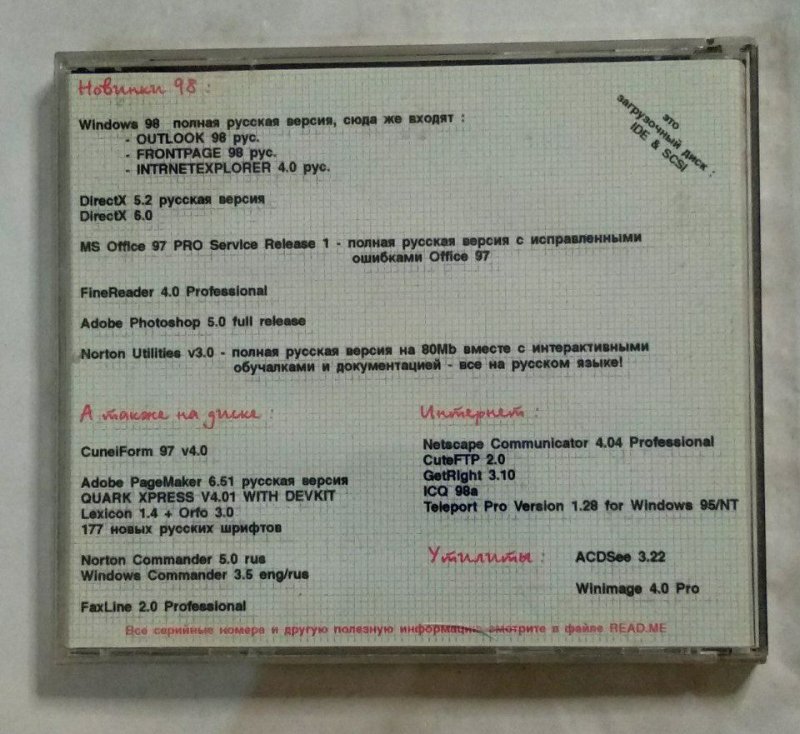 Новинки 98 :
это
загрузочный диск :
IDE & SCSI
Windows 98 полная русская версия, сюда же входят :
- OUTLOOK 98 рус.
- FRONTPAGE 98 рус.
- INTRNETEXPLORER 4.0 рус.
DirectX 5.2 русская версия
DirectX 6.0
MS Office 97 PRO Service Release 1 - полная русская версия с исправленными
ошибками Office 97
FineReader 4.0 Professional
Adobe Photoshop 5.0 full release
Norton Utilities v3.0 - полная русская версия на 80Mb вместе с интерактивными
обучалками и документацией - все на русском языке!
А также на диске :
CuneiForm 97 v4.0
Adobe PageMaker 6.51 русская версия
QUARK XPRESS V4.01 WITH DEVKIT
Lexicon 1.4 + Orfo 3.0
177 новых русских шрифтов
Norton Commander 5.0 rus
Windows Commander 3.5 eng/rus
FaxLine 2.0 Professional
Интернет :
Netscape Communicator 4.04 Professional
CuteFTP 2.0
GetRight 3.10
ICQ 98a
Teleport Pro Version 1.28 for Windows 95/NT
Утилиты :
ACDSee 3.22
Winimage 4.0 Pro
Все серийные номера и другую полезную информацию смотрите в файле READ.ME